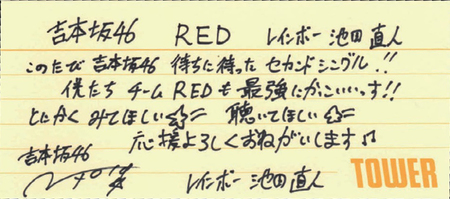 吉本坂46 RED レインボー 池田直人
このたび 吉本坂46 待ちに待った セカンドシングル!!
僕たち チームREDも最強にかっこいいっす!!
とにかく みてほしい☆ミ 聴いてほしい☆ミ
応援よろしくおねがいします♪
吉本坂46
レインボー 池田直人
TOWER